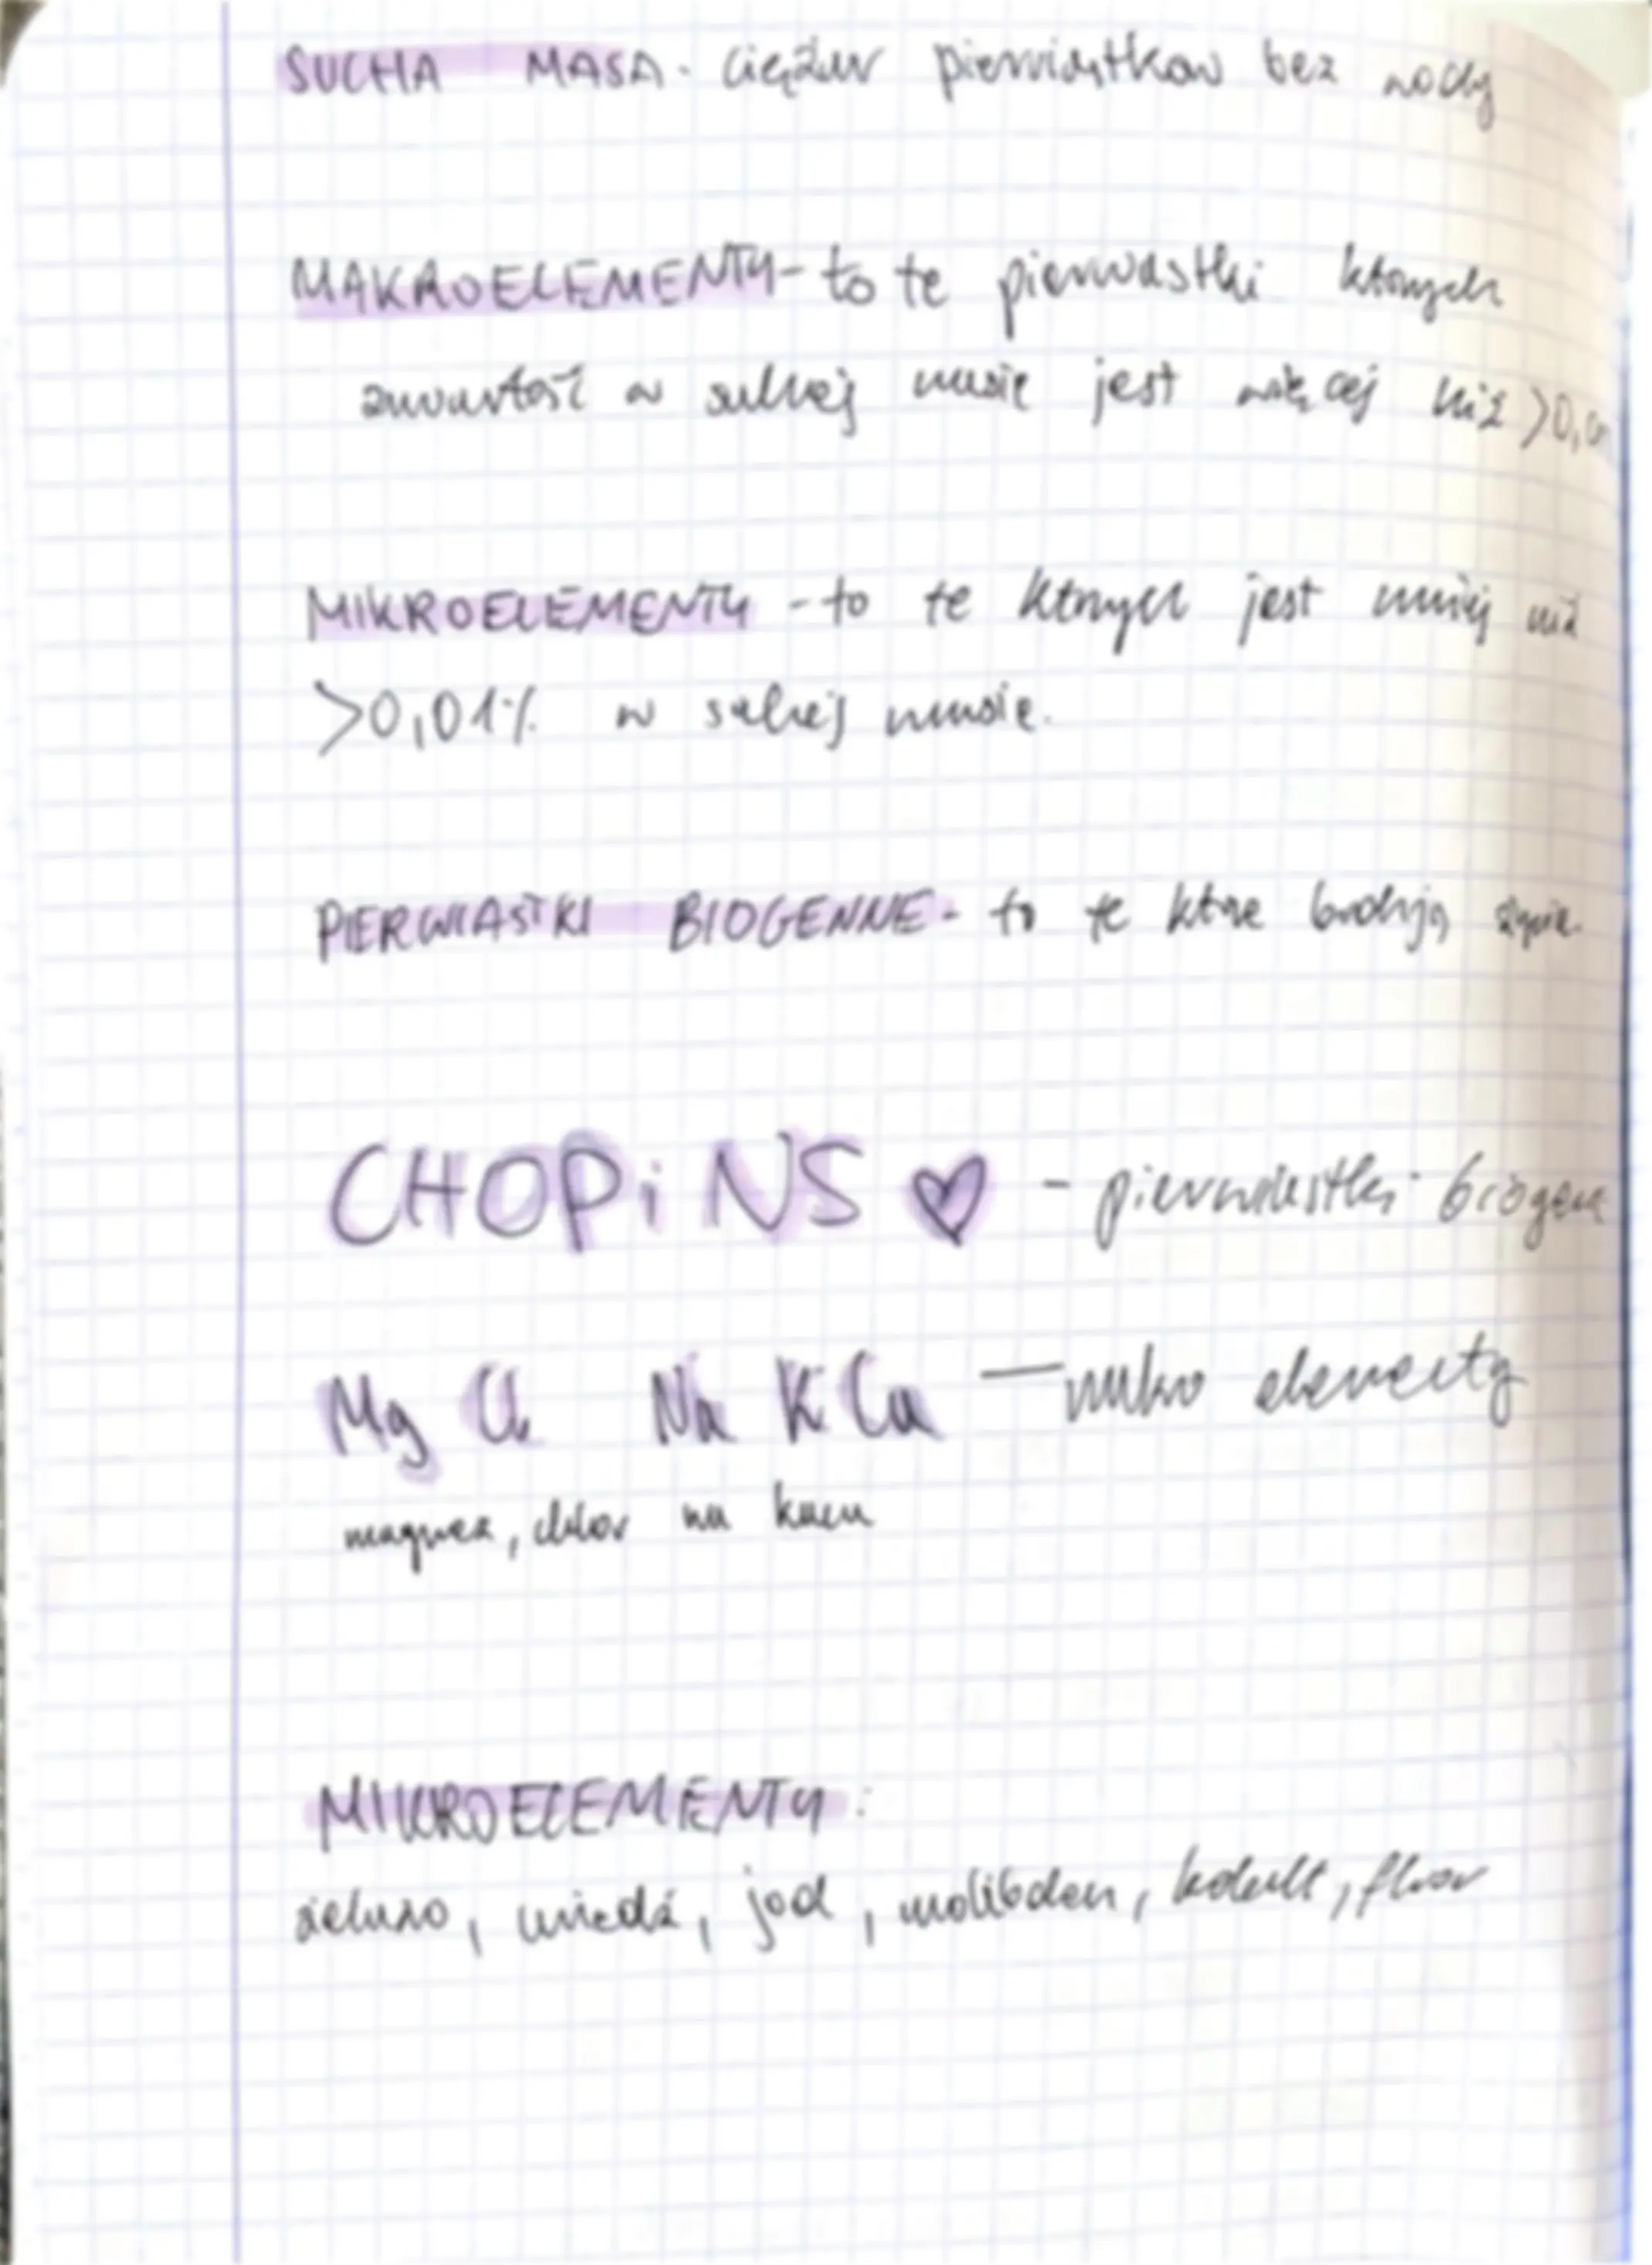 SUCHA MASA - ciężar pierwiastków bez wody
MAKROELEMENTY - to te pierwiastki których
zawartość w suchej masie jest więcej niż >0,0
MIKROELEMENTY - to te których jest mniej niż
>0,01% w suchej masie.
PIERWIASTKI BIOGENNE - to te które budują życie.
CHOPiNS ♡ - pierwiastki biogenne
Mg Cl Na K Ca — elementy
magnez, chlor na kacu
MIKROELEMENTY:
żelazo, miedź, jod, molibden, kobalt, fluor